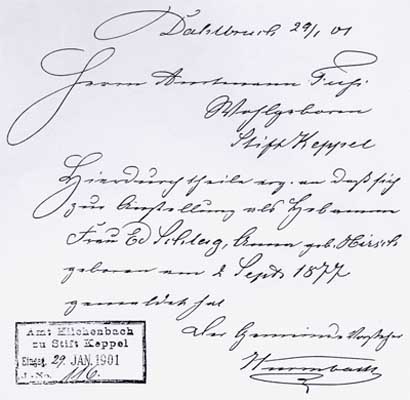 Dahlbruch 29/1 01
Herrn Amtmann
Wohlgeboren
Stift Keppel
Hierdurch theile erg. an daß sich
zur Anstellung als Hebamme
Frau Ed Schlag, Anna geb. Hirsch
geboren am 2 Sept. 1877
gemeldet hat
Der Gemeinde Vorsteher
Amt Hilchenbach
zu Stift Keppel
Eingeg. 29. JAN. 1901
J.-No. 116.